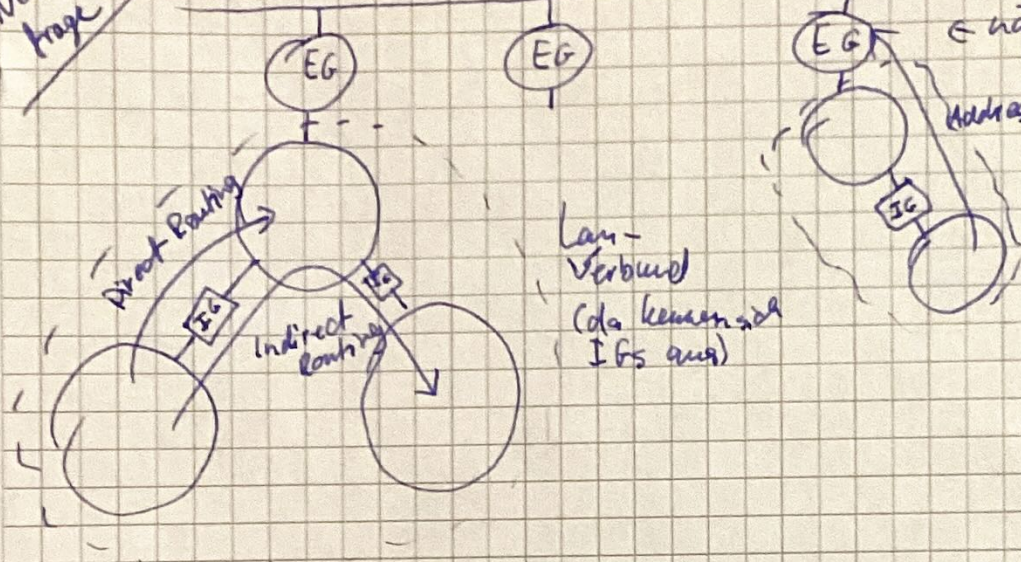 trage
EG
EG
EG
Direct Routing
IG
IG
IG
Indirect
Routing
Lan-
Verbund
(da kennen sich
IGs aus)